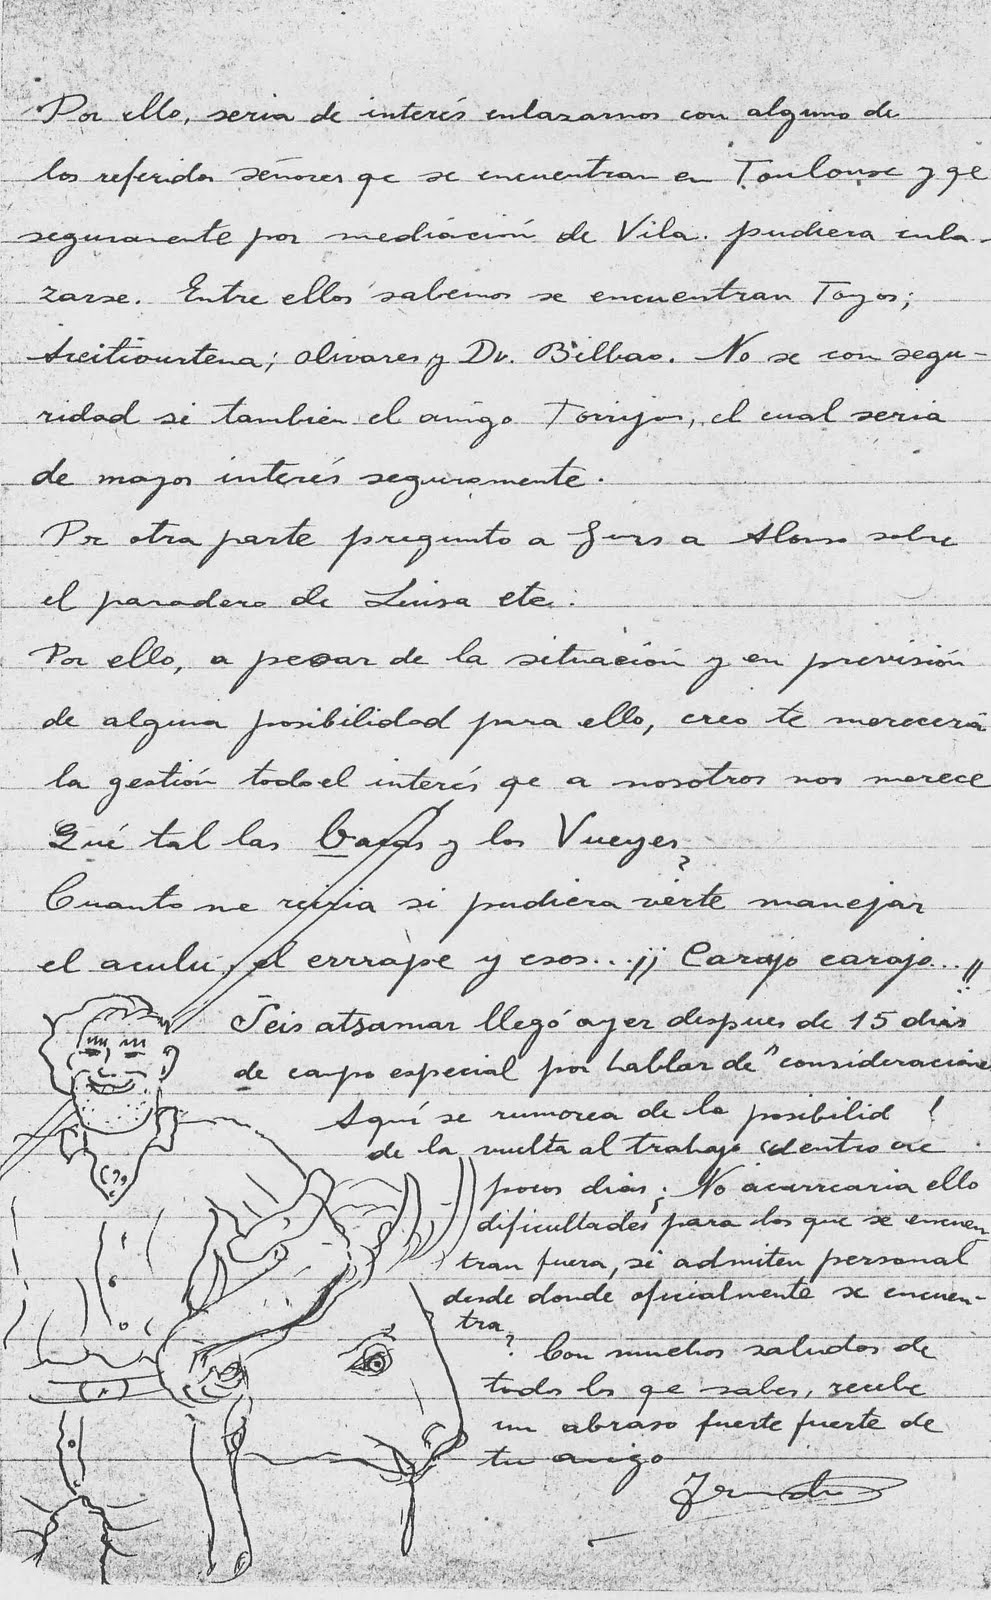 Por ello, seria de interés enlazarnos con alguno de
los referidos señores qe se encuentran en Toulouse y qe
seguramente por mediación de Vila. pudiera enla-
zarse. Entre ellos sabemos se encuentran Toyos;
Areitiourtena; Olivares y Dr. Bilbao. No se con segu-
ridad si tambien el amigo Torrijos, el cual seria
de mayor interés seguramente.
Pr otra parte pregunto a a Alonso sobre
el paradero de Luisa etc.
Por ello, a pesar de la situación y en previsión
de alguna posibilidad para ello, creo te merecerá
la gestión todo el interés qe a nosotros nos merece
Qué tal las Bacas y los Vueyes?
Cuanto me reiria si pudiera verte manejar
el aculu, el errrape y esos...¡¡ Carajo carajo...!!
Seis atsamar llegó ayer despues de 15 dias
de campo especial por hablar de "consideraciones
Aquí se rumorea de la posibilid !
de la vuelta al trabajo dentro de
pocos dias; No acarrearia ello
dificultades para los que se encuen-
tran fuera, si admiten personal
desde donde oficialmente se encuen-
tra?
Con muchos saludos de
todos los qe sabes, recibe
un abraso fuerte fuerte de
tu amigo